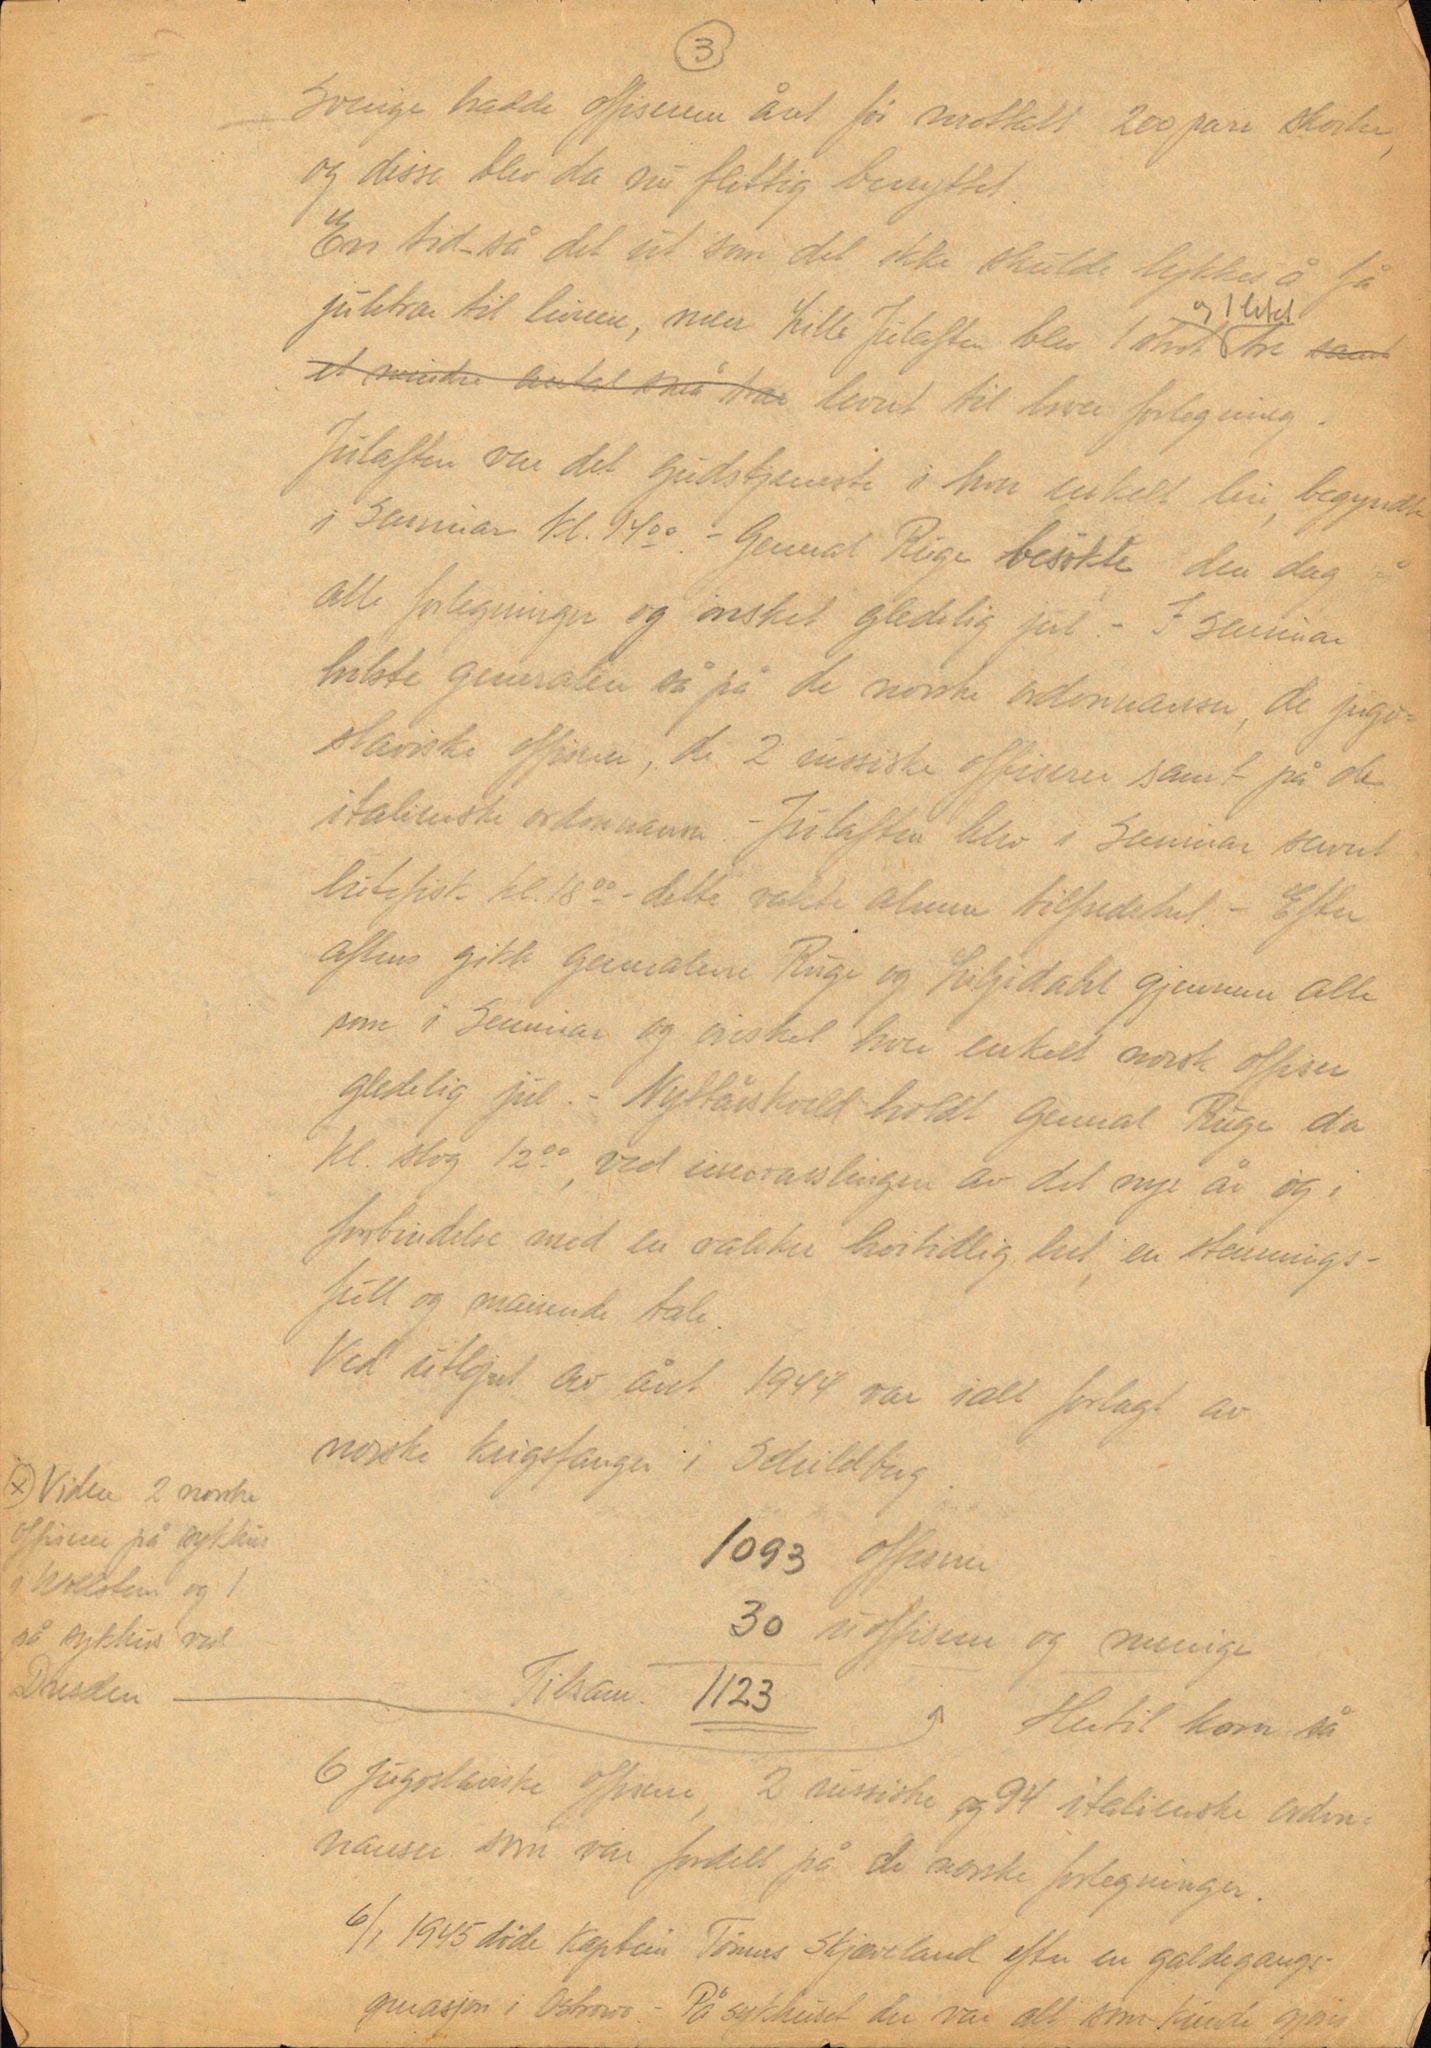 3
Sverige hadde offiserene året før mottatt 200 parr skøiter,
og disse blev da nu flittig benyttet.
En tid så det ut som det ikke skulde lykkes å få
juletrær til leirene, men Lille Julaften blev 1 stort og 1 litet tre samt
et mindre antal små trær levert til hver forlegning.
Julaften var det gudstjeneste i hver enkelt leir, begyndte
i Seminar kl. 14⁰⁰. - General Ruge besøkte den dag
alle forlegninger og ønsket gledelig jul. - I Seminar
hilste generalen så på de norske ordonnanser, de jugo=
slaviske offiserer, de 2 russiske offiserer samt på de
italienske ordonnanser. - Julaften blev i Seminar servert
lutefisk kl. 18⁰⁰ - dette vakte almen tilfredshet. - Efter
aftens gikk generalene Ruge og Liljedahl gjennem alle
rom i Seminar og ønsket hver enkelt norsk offiser
gledelig jul. - Nyttårskveld holdt general Ruge da
kl. slog 12⁰⁰, ved innvarslingen av det nye år og i
forbindelse med en vakker høitidlighet, en stemnings-
full og manende tale.
Ved utløpet av året 1944 var ialt forlagt av
norske krigsfanger i Schildberg
1093 offiserer
30 uoffiserer og menige
Tilsam. 1123
Hertil kom så
(x) Viden 2 norske
offiserer på sykhus
i Wollstein og 1
på sykhus ved
Dresden
6 jugoslaviske offiserer, 2 russiske og 94 italienske ordon=
nanser som var fordelt på de norske forlegninger.
6/1 1945 døde Kaptein Tønnes Skjæveland efter en galdegangs-
operasjon i Ostrowo. - På sykehuset der var alt som kunde gjøres